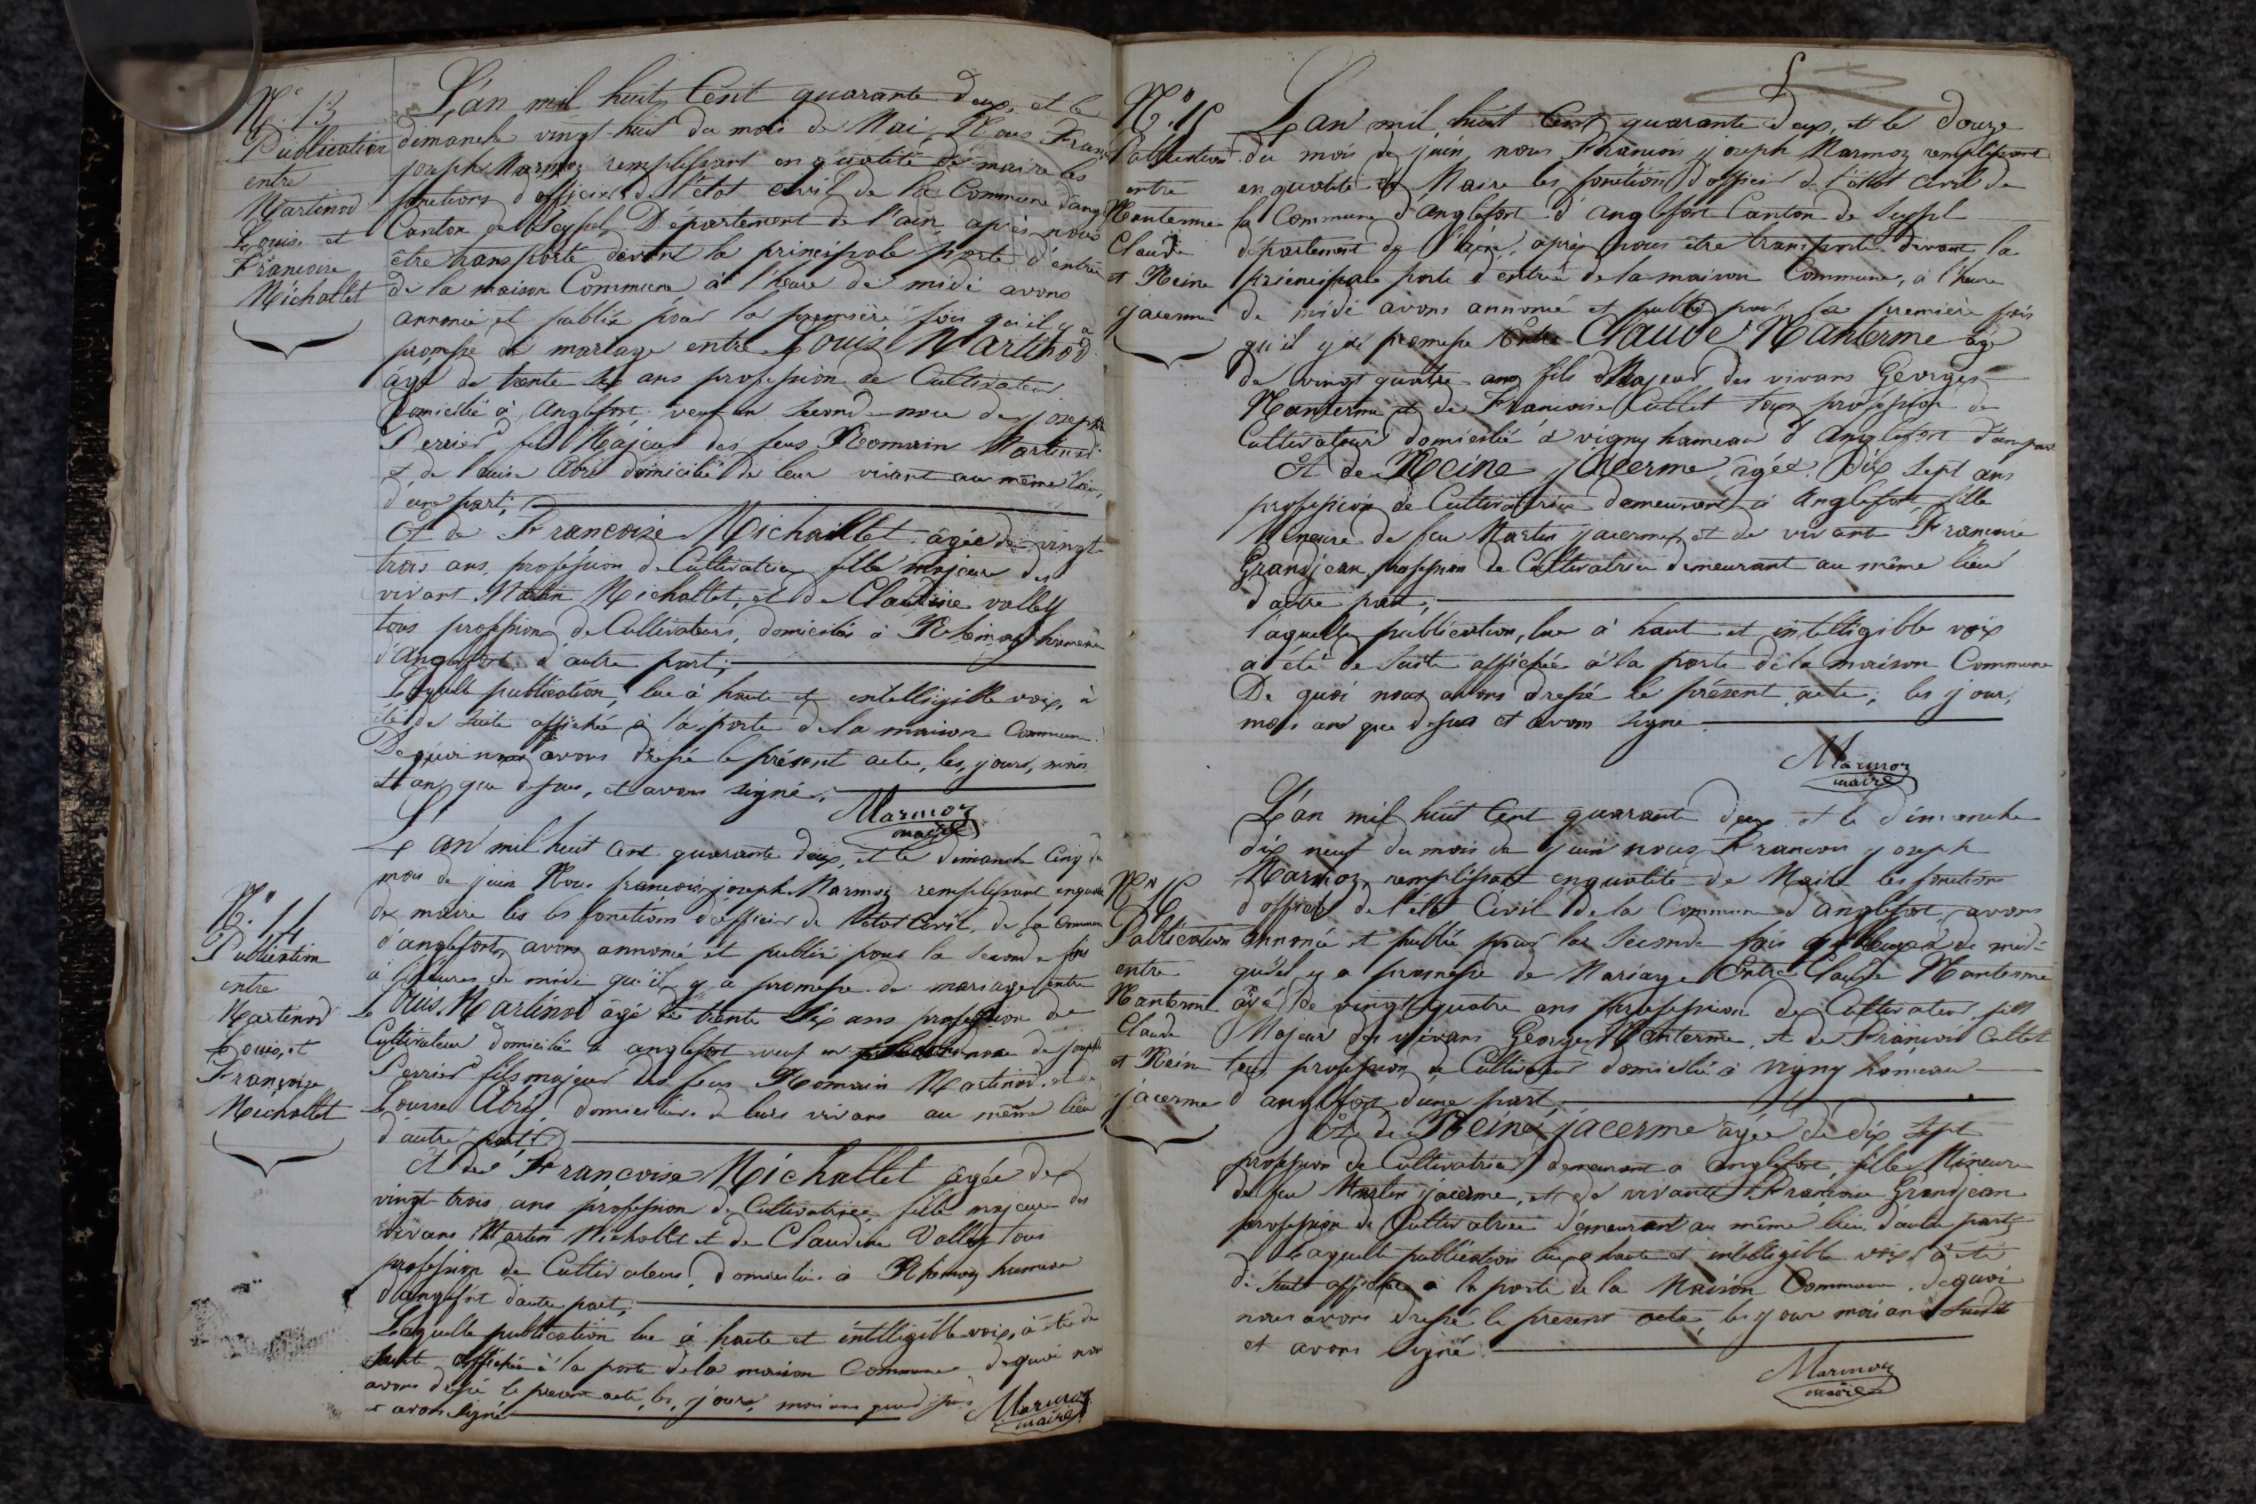 N.° 13
Publication
entre
Martinod
Louis et
Francoise
Michallet
L'an mil huit Cent quarante deux, et le
dimanche vingt huit du mois de Mai Nous Fran
joseph Marmoz remplissant en qualité de maire les
fonctions d'officier de l'état civil de la Commune d'ang
Canton de Seyssel Département de l'ain, après nous
être transporté devant la principale porte d'entrée
de la maison Commune à l'heure de midi avons
annoncé et publié pour la première fois qu'il y a
promesse de mariage entre Louis Martinod
âgé de trente six ans profession de Cultivateur
domicilié à Anglefort veuf en second noce de joseph
Perrier fils Majeur des feus Romain Martinod
et de Louise Abry domicilié de leur vivant au même lieu,
d'une part;
Et de Francoise Michallet âgée de vingt
trois ans, profession de Cultivatrice fille majeure des
vivant Martin Michallet, et de Claudine vallet
tous profession de Cultivateurs, domiciliés à Rhemoz hameau
d'Anglefort d'autre part;
Laquelle publication, lue à haute et intelligible voix, à
été de suite affiché à la porte de la maison Commune.
De quoi nous avons dressé le présent acte, les, jours, mois
et an que dessus, et avons signé.
Marmoz
maire
N.° 14
Publication
entre
Martinod
Louis, et
Françoise
Michallet
L'an mil huit Cent quarante deux, et le dimanche Cinq du
mois de juin Nous francois joseph Marmoz remplissant en qualité
de maire les les fonctions d'officier de l'état Civil, de la Commune
d'anglefort, avons annoncé et publié pour la seconde fois
à l'heures de midi qu'il y a promesse de mariage entre
Louis Martinod âgé de trente six ans profession de
Cultivateur domicilié à anglefort veuf en noce de joseph
Perrier fils majeur des feus Romain Martinod, et de
Louise Abry domiciliés de leurs vivans au même lieu
d'autre part;
Et de Francoise Michallet âgée de
vingt trois ans profession de Cultivatrice fille majeure des
vivans Martin Michallet et de Claudine Vallet tous
profession de Cultivateurs, domiciliés à Rhemoz hameau
d'anglefort d'autre part;
Laquelle publication lue à haute et intelligible voix, à été de
suite affichée à la porte de la maison Commune de quoi nous
avons dressé le présent acte, les, jours, mois ans que dessus
et avons signé
Marmoz
maire
N.° 15
Publication
entre
Manterme
Claude
et Reine
jacerme
L'an mil huit Cent quarante deux, et le douze
du mois de juin nous Francois joseph Marmoz remplissant
en qualité de Maire les fonctions d'officier de l'état Civil de
la Commune d'Anglefort d'Anglefort Canton de Seyssel
département de l'ain, après nous être transporté devant la
principale porte d'entrée de la maison Commune, à l'heure
de midi avons annoncé et publié pour la première fois
qu'il y a promesse Entre Claude Manterme âgé
de vingt quatre ans fils Majeur des vivans Georges
Manterme et de Francoise Cullet tous profession de
Cultivateurs domicilié à vigny hameau d'Anglefort d'une part
Et de Reine jacerme âgée Dix sept ans
profession de Cultivatrice demeurant à Anglefort, fille
Mineure de feu Martin jacerme et de vivante Francoise
Grandjean profession de Cultivatrice demeurant au même lieu
d'autre part;
l'aquelle publication, lue à haut et intelligible voix
à été de suite affichée à la porte de la maison Commune
De quoi nous avons dressé le présent acte, les jour,
mois ans que dessus et avons signé
Marmoz
maire
N.° 16
Publication
entre
Manterme
Claude
et Reine
jacerme
L'an mil huit Cent quarante deux et le dimanche
dix neuf du mois de juin nous Francois joseph
Marmoz, remplissant en qualité de Maire les fonctions
d'officier de l'état Civil de la Commune d'anglefort, avons
annoncé et publié pour la seconde fois de midi
qu'il y a promesse de Mariage Entre Claude Manterme
âgé de vingt quatre ans profession de Cultivateur fils
Majeur des vivans Georges Manterme, et de Francoise Cullet
tous profession de Cultivateurs domicilié à vigny hameau
d'anglefort d'une part;
Et de Reine jacerme âgée de dix sept
profession de Cultivatrice demeurant à anglefort, fille Mineure
de feu Martin jacerme, et de vivante Francoise Grandjean
profession de Cultivatrice demeurant au même lieu d'autre part;
Laquelle publication lue à haute et intelligible voix à été
de suite affichée à la porte de la Maison Commune, de quoi
nous avons dressé le présent acte, les jour mois an susdits
et avons signé
Marmoz
maire